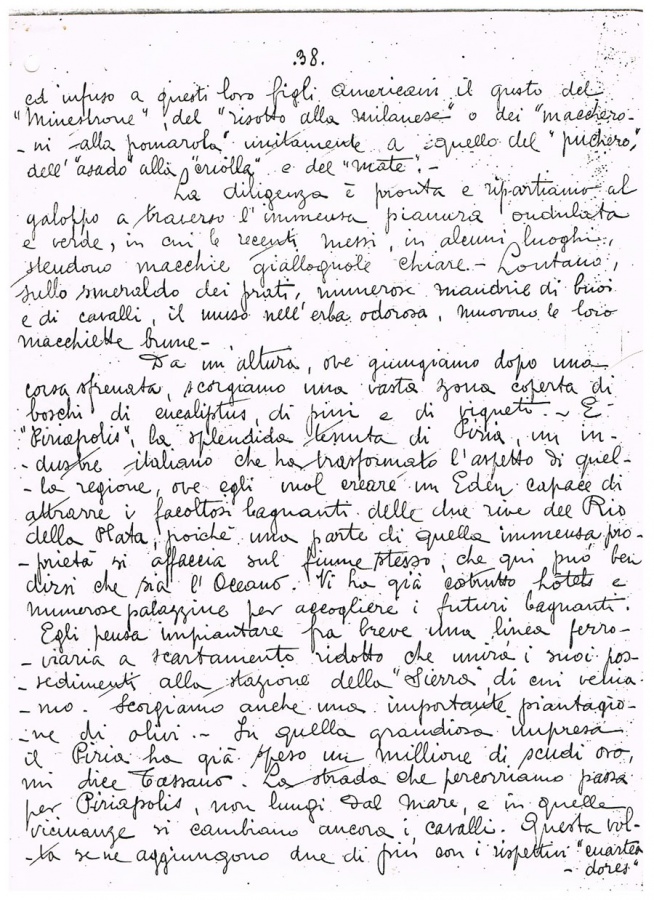 .38.
ed infuso a questi loro figli americani il gusto del
"Minestrone", del "risotto alla milanese" o dei "macchero-
-ni alla pomarola" unitamente a quello del "puchero",
dell'"asado" alla "criolla" e del "mate".-
La diligenza è pronta e ripartiamo al
galoppo a traverso l'immensa pianura ondulata
e verde, in cui le recenti messi, in alcuni luoghi,
stendono macchie giallognole chiare.- Lontano,
sullo smeraldo dei prati, numerose mandrie di buoi
e di cavalli, il muso nell'erba odorosa, muovono le loro
macchiette brune-
Da un'altura, ove giungiamo dopo una
corsa sfrenata, scorgiamo una vasta zona coperta di
boschi di eucaliptus, di pini e di vigneti.- È
"Piriapolis", la splendida tenuta di Piria, un in-
-dustre italiano che ha trasformato l'aspetto di quel-
-la regione, ove egli vuol creare un Eden capace di
attrarre i facoltosi bagnanti delle due rive del Rio
della Plata, poichè una parte di quella immensa pro-
-prietà si affaccia sul fiume stesso, che qui può ben
dirsi che sia l'Oceano. Vi ha già cotrutto hôtels e
numerose palazzine per accogliere i futuri bagnanti.
Egli pensa impiantare fra breve una linea ferro-
-viaria a scartamento ridotto che unirà i suoi pos-
-sedimenti alla stazione della "Sierra", di cui veniva-
-mo. Scorgiamo anche una importante piantagio-
-ne di olivi.- In quella grandiosa impresa
il Piria ha già speso un millione di scudi oro,
mi dice Tassano. La strada che percorriamo passa
per Piriapolis, non lungi dal mare, e in quelle
vicinanze si cambiano ancora i cavalli. Questa vol-
-ta se ne aggiungono due di più con i rispettivi "cuartea
-dores"